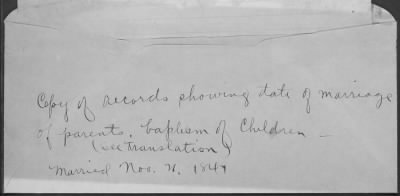 Copy of records showing date of marriage
of parents. baptism of Children —
(see translation)
Married Nov. 21, 184